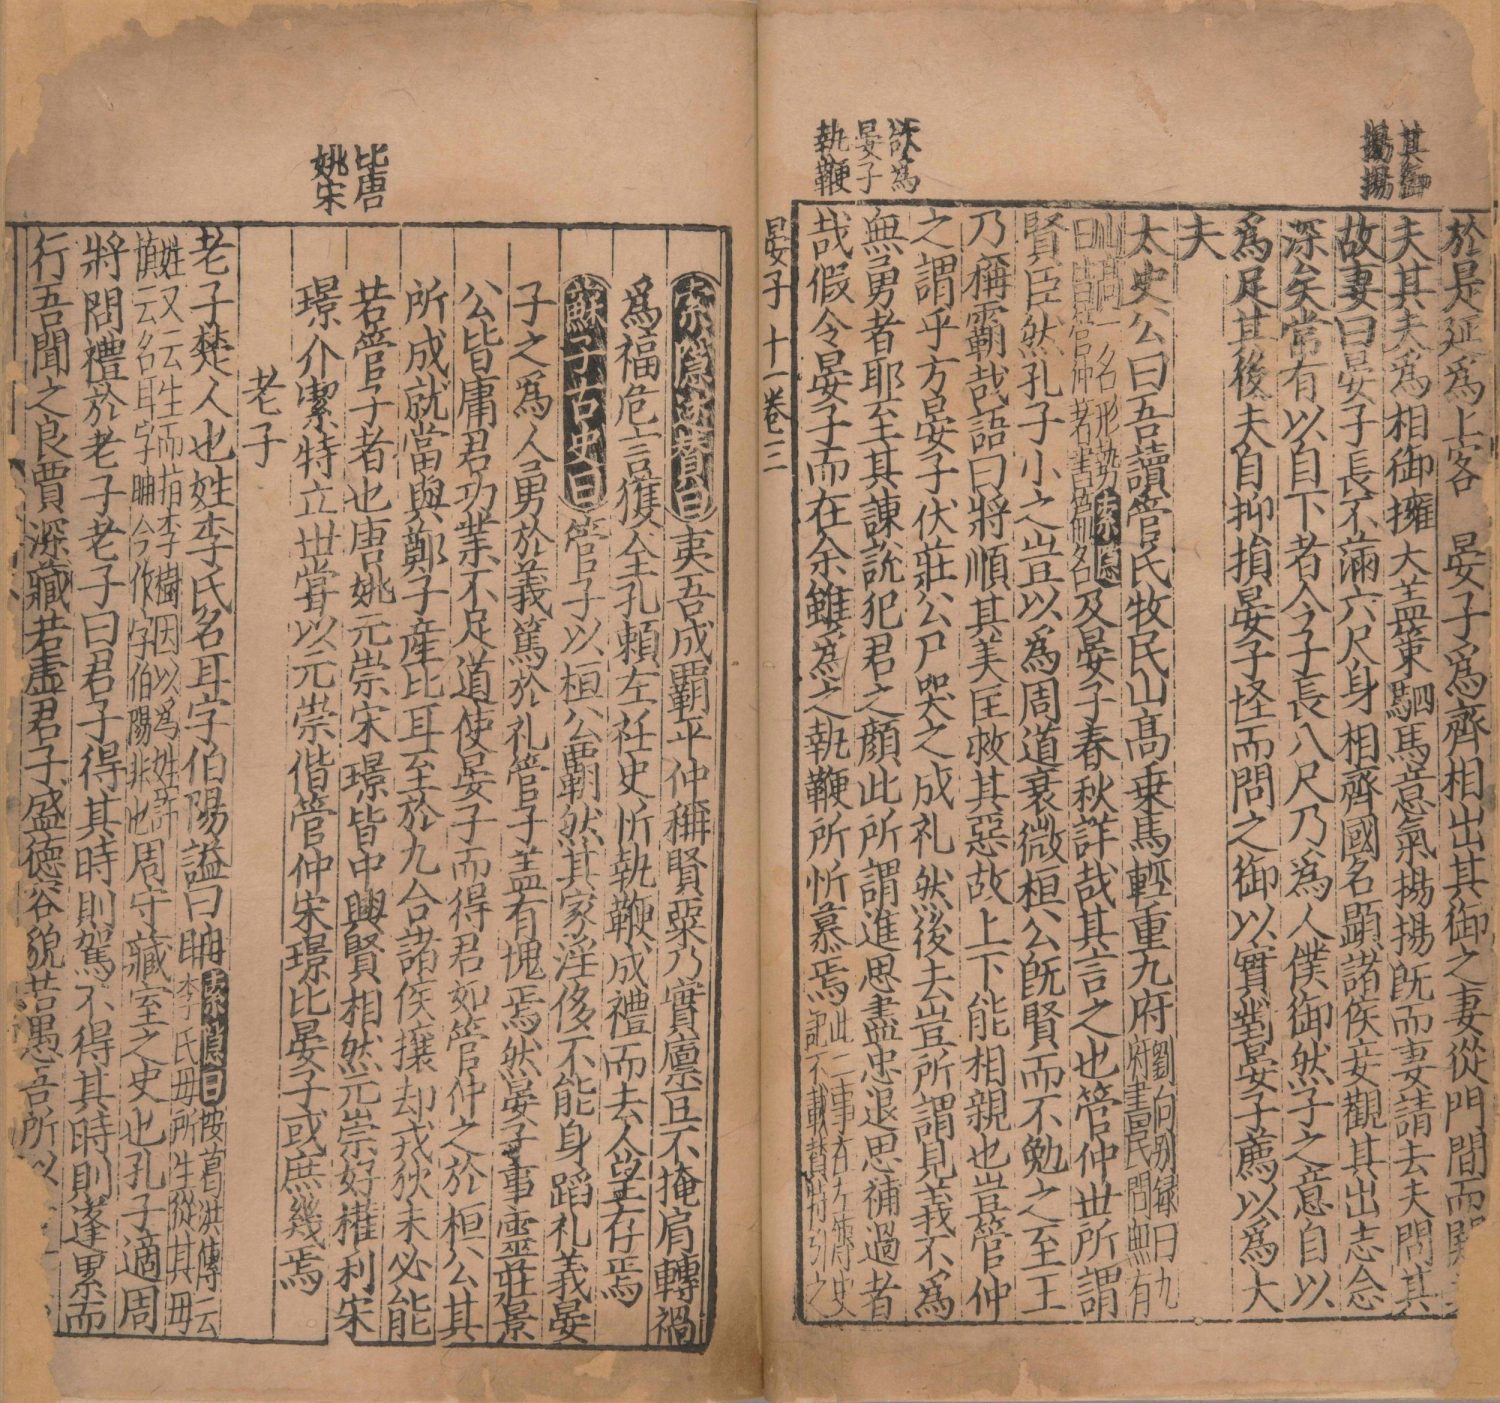 其御
揚揚
欲爲
晏子
執鞭
於是延爲上客 晏子爲齊相出其御之妻從門間而闚
夫其夫爲相御擁大蓋策駟馬意氣揚揚旣而妻請去夫問其
故妻曰晏子長不滿六尺身相齊國名顯諸侯妾觀其出志念
深矣常有以自下者今子長八尺乃爲人僕御然子之意自以
爲足其後夫自抑損晏子怪而問之御以實對晏子薦以爲大
夫
太史公曰吾讀管氏牧民山髙乗馬輕重九府劉向别録曰九
府書民間無有
山髙一名形勢索隱
曰皆管仲著書篇名及晏子春秋詳哉其言之也管仲世所謂
賢臣然孔子小之豈以爲周道衰微桓公旣賢而不勉之至王
乃稱霸哉語曰將順其美匡救其惡故上下能相親也豈管仲
之謂乎方晏子伏莊公尸哭之成礼然後去豈所謂見義不爲
無勇者耶至其諫說犯君之顔此所謂進思盡忠退思補過者
哉假令晏子而在余雖爲之執鞭所忻慕焉此二事在左傳史
記不載贊特引之
晏子 十一卷三
比唐
姚宋
索隱述贊曰夷吾成覇平仲稱賢粟乃實廪豆不掩肩轉禍
爲福危言獲全孔賴左衽史忻執鞭成禮而去人望存焉
蘇子古史曰管子以桓公覇然其家淫侈不能身蹈礼義晏
子之爲人勇於義篤於礼管子盖有愧焉然晏子事靈莊景
公皆庸君功業不足道使晏子而得君如管仲之於桓公其
所成就當與鄭子產比耳至於九合諸侯攘却戎狄未必能
若管子者也唐姚元崇宋璟皆中興賢相然元崇好權利宋
璟介潔特立世甞以元崇偕管仲宋璟比晏子或庶幾焉
老子
老子楚人也姓李氏名耳字伯陽謚曰耼索隱曰按葛洪傳云
李氏母所生從其母
姓又云生而指李樹因以爲姓許
慎云名耳字耼今作字伯陽非也周守藏室之史也孔子適周
將問禮於老子老子曰君子得其時則駕不得其時則蓬累而
行吾聞之良賈深藏若虛君子盛德容貌若愚吾所以